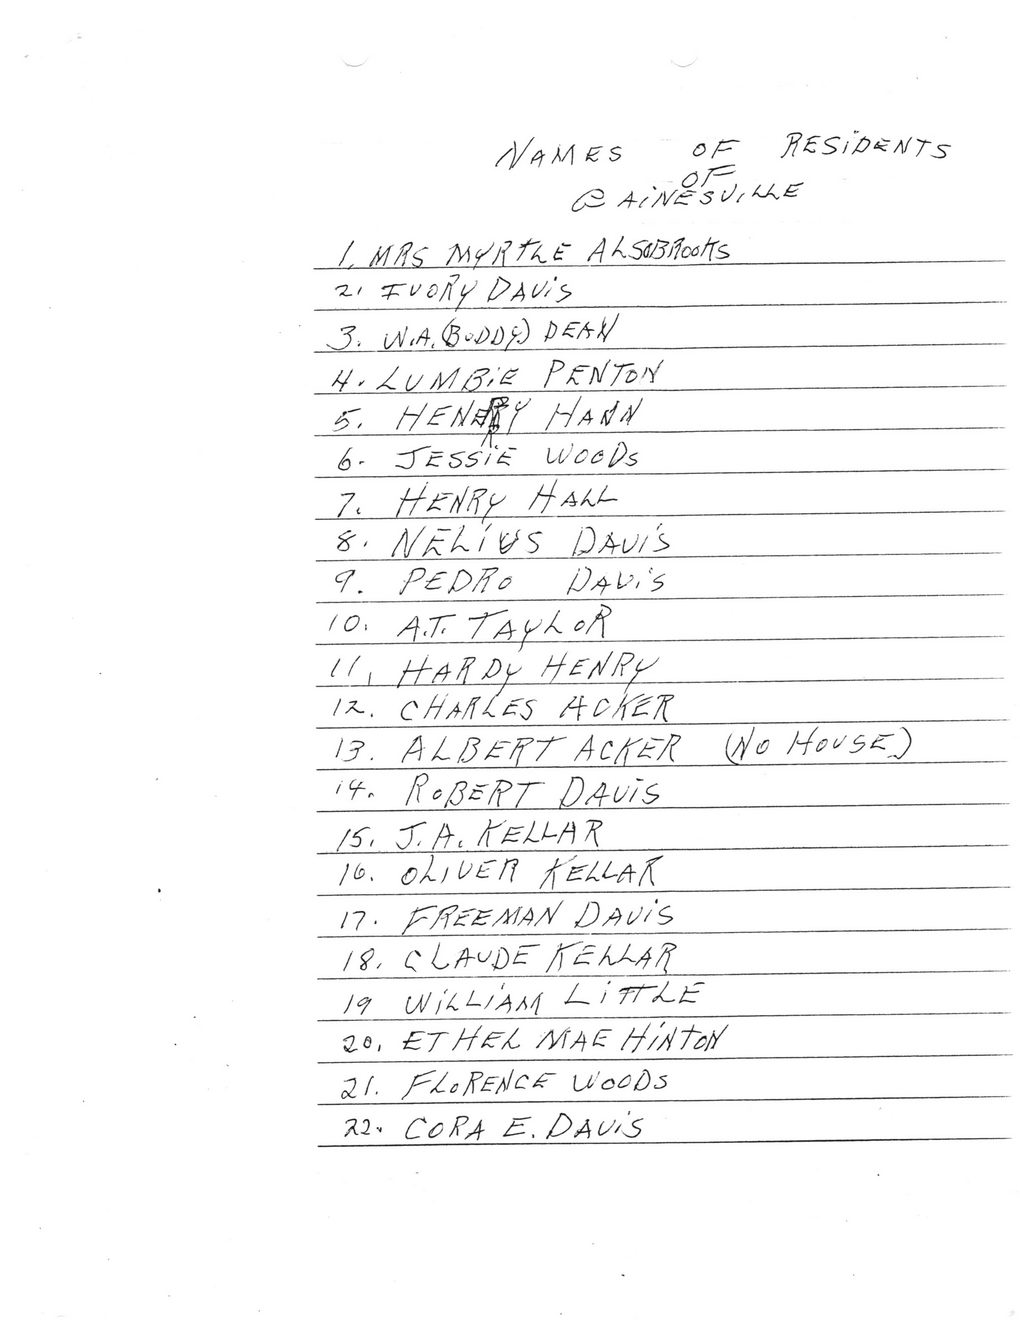 NAMES OF RESIDENTS
OF
GAINESVILLE
1. MRS MYRTLE ALSOBROOKS
2. IVORY DAVIS
3. W.A. (BUDDY) DEAN
4. LUMBIE PENTON
5. HENRY HANN
6. JESSIE WOODS
7. HENRY HALL
8. NELIUS DAVIS
9. PEDRO DAVIS
10. A.T. TAYLOR
11. HARDY HENRY
12. CHARLES ACKER
13. ALBERT ACKER (NO HOUSE)
14. ROBERT DAVIS
15. J.A. KELLAR
16. OLIVER KELLAR
17. FREEMAN DAVIS
18. CLAUDE KELLAR
19 WILLIAM LITTLE
20. ETHEL MAE HINTON
21. FLORENCE WOODS
22. CORA E. DAVIS